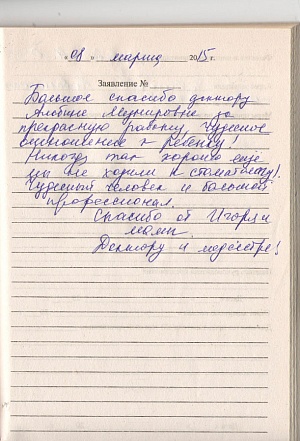 «08» марта 2015 г.
Заявление №
Большое спасибо доктору
Альбине Мунировне за
прекрасную работу, чудесное
отношение к ребёнку!
Никогда так хорошо ещё
мы не ходили к стоматологу!
Чудесный человек и большой
профессионал.
Спасибо от Игоря и
мамы.
Доктору и медсестре!